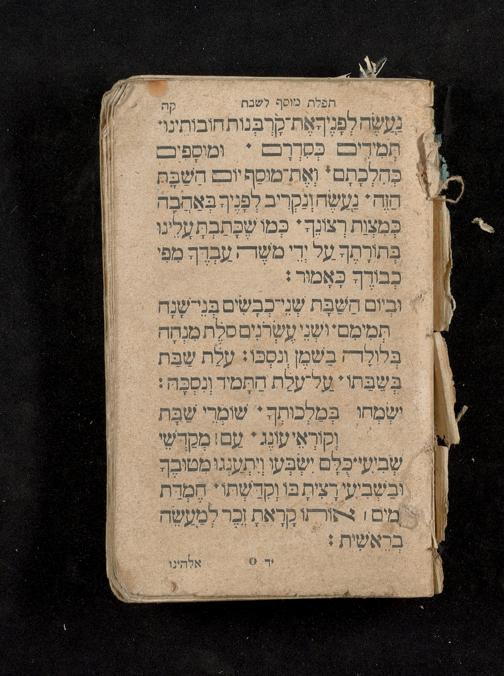 תפלת מוסף לשבת קה
נַעֲשֶׂה לְפָנֶיךָ אֶת־קָרְבְּנוֹת חוֹבוֹתֵינוּ·
תְּמִידִים כְּסִדְרָם · וּמוּסָפִים
כְּהִלְכָתָם· וְאֶת־מוּסַף יוֹם הַשַּׁבָּת
הַזֶּה· נַעֲשֶׂה וְנַקְרִיב לְפָנֶיךָ בְּאַהֲבָה
כְּמִצְוַת רְצוֹנֶךָ· כְּמוֹ שֶׁכָּתַבְתָּ עָלֵינוּ
בְּתוֹרָתֶךָ עַל יְדֵי מֹשֶׁה עַבְדֶּךָ מִפִּי
כְבוֹדֶךָ כָּאָמוּר:
וּבְיוֹם הַשַּׁבָּת שְׁנֵי־כְבָשִׂים בְּנֵי־שָׁנָה
תְּמִימִם· וּשְׁנֵי עֶשְׂרֹנִים סֹלֶת מִנְחָה
בְּלוּלָה בַשֶּׁמֶן וְנִסְכּוֹ: עֹלַת שַׁבַּת
בְּשַׁבַּתּוֹ· עַל־עֹלַת הַתָּמִיד וְנִסְכָּהּ:
יִשְׂמְחוּ בְמַלְכוּתְךָ· שׁוֹמְרֵי שַׁבָּת
וְקוֹרְאֵי עוֹנֶג· עַם׀ מְקַדְּשֵׁי
שְׁבִיעִי־כֻּלָּם יִשְׂבְּעוּ וְיִתְעַנְּגוּ מִטּוּבֶךָ
וּבַשְּׁבִיעִי רָצִיתָ בּוֹ וְקִדַּשְׁתּוֹ· חֶמְדַּת
יָמִים׀ אוֹתוֹ קָרָאתָ זֵכֶר לְמַעֲשֵׂה
בְרֵאשִׁית:
יד o אלהינו